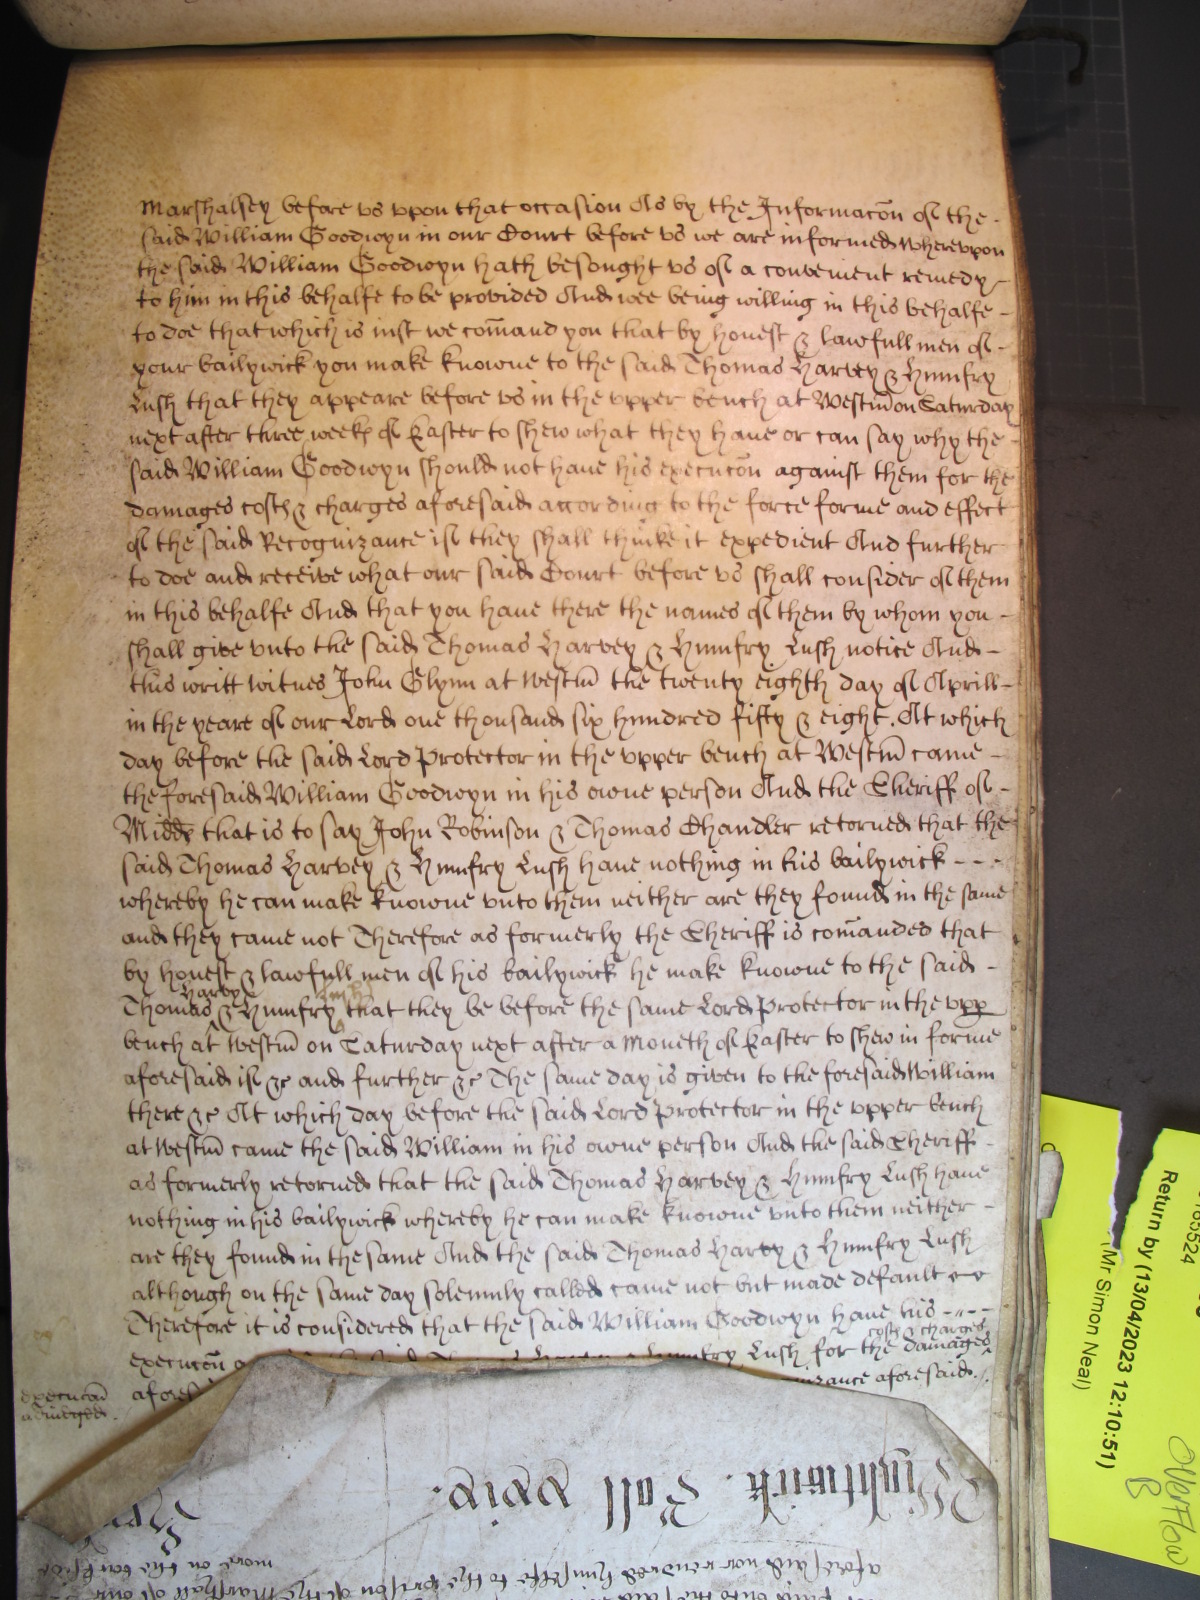 Marshalsey before vs vpon that occasion As by the Informacōn of the -
said William Goodwyn in our Court before vs we are informed wherevpon
the said William Goodwyn hath besought vs of a convenient remedy
to him in this behalfe to be provided And wee being willing in this behalfe -
to doe that which is iust we com̄and you that by honest & lawfull men of -
your bailywick you make knowne to the said Thomas Harvey & Humfry
Lush that they appeare before vs in the vpper bench at Westm̄ on Saturday
next after three weekes of Easter to shew what they haue or can say why the -
said William Goodwyn should not haue his execucōn against them for the
damages costs & charges aforesaid according to the force forme and effect
of the said Recognizance if they shall thinke it expedient And further
to doe and receive what our said Court before vs shall consider of them
in this behalfe And that you haue there the names of them by whom you -
shall give vnto the said Thomas Harvey & Humfry Lush notice And -
this writt witnes John Glynn at Westm̄ the twenty eighth day of Aprill -
in the yeare of our Lord one thousand six hundred fifty & eight. At which
day before the said Lord Protector in the vpper bench at Westm̄ came -
the foresaid William Goodwyn in his owne person And the Sheriff of -
Midd̄x that is to say John Robinson & Thomas Chandler retorned that the
said Thomas Harvey & Humfry Lush haue nothing in his bailywick - - -
whereby he can make knowne vnto them neither are they found in the same
and they came not Therefore as formerly the Sheriff is com̄anded that
by honest & lawfull men of his bailywick he make knowne to the said -
Harvey Lush
Thomas & Humfry that they be before the same Lord Protector in the vpp
bench at Westm̄ on Saturday next after a Moneth of Easter to shew in forme
aforesaid if &c and further &c The same day is given to the foresaid William
there &c At which day before the said Lord Protector in the vpper bench
at Westm̄ came the said William in his owne person And the said Sheriff -
as formerly retorned that the said Thomas Harvey & Humfry Lush haue
nothing in his bailywick whereby he can make knowne vnto them neither -
are they found in the same And the said Thomas Harvey & Humfry Lush
although on the same day solemnly called came not but made default
Therefore it is considered that the said William Goodwyn haue his - - - -
costs & charges
execucōn Lush for the damages
aforesaid.
execucōn
adiudged.
Wightwick. Roll
more on the backside
aforesaid now rendred himselfe to the prison of the Marshall of our
Return by (13/04/2023 12:10:51)
(Mr Simon Neal)
Overflow
B